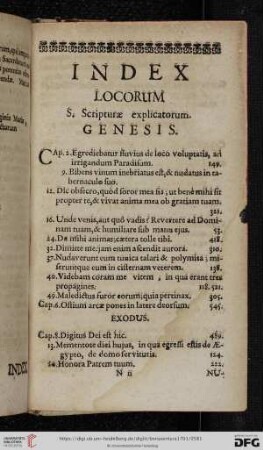 INDEX
LOCORUM
S. Scripturæ explicatorum.
GENESIS.
Cap. 2. Egrediebatur fluvius de loco voluptatis, ad
irrigandum Paradisum. 149.
9. Bibens vinum inebriatus est, & nudatus in ta-
bernaculo suo.
12. Dic obsecro, quod soror mea sis; ut bene mihi sit
propter te, & vivat anima mea ob gratiam tuam.
321.
16. Unde venis, aut quò vadis? Revertere ad Domi-
nam tuam, & humiliare sub manu ejus. 53.
14. Da mihi animas; cætera tolle tibi. 418.
32. Dimitte me; jam enim ascendit aurora. 305.
37. Nudaverunt eum tunica talari & polymita; mi-
seruntque eum in cisternam veterem. 138.
40. Videbam coram me vitem, in qua erant tres
propagines. 118. 521.
49. Maledictus furor eorum; quia pertinax. 305.
Cap. 6. Ostium arcæ pones in latere deorsum. 545.
EXODUS.
Cap. 8. Digitus Dei est hic. 469.
13. Mementote diei hujus, in qua egressi estis de Æ-
gypto, de domo servitutis. 124.
20. Honora Patrem tuum. 222.
N n
NU-
INDE
UNIVERSITÄTS-
BIBLIOTHEK
HEIDELBERG
DFG